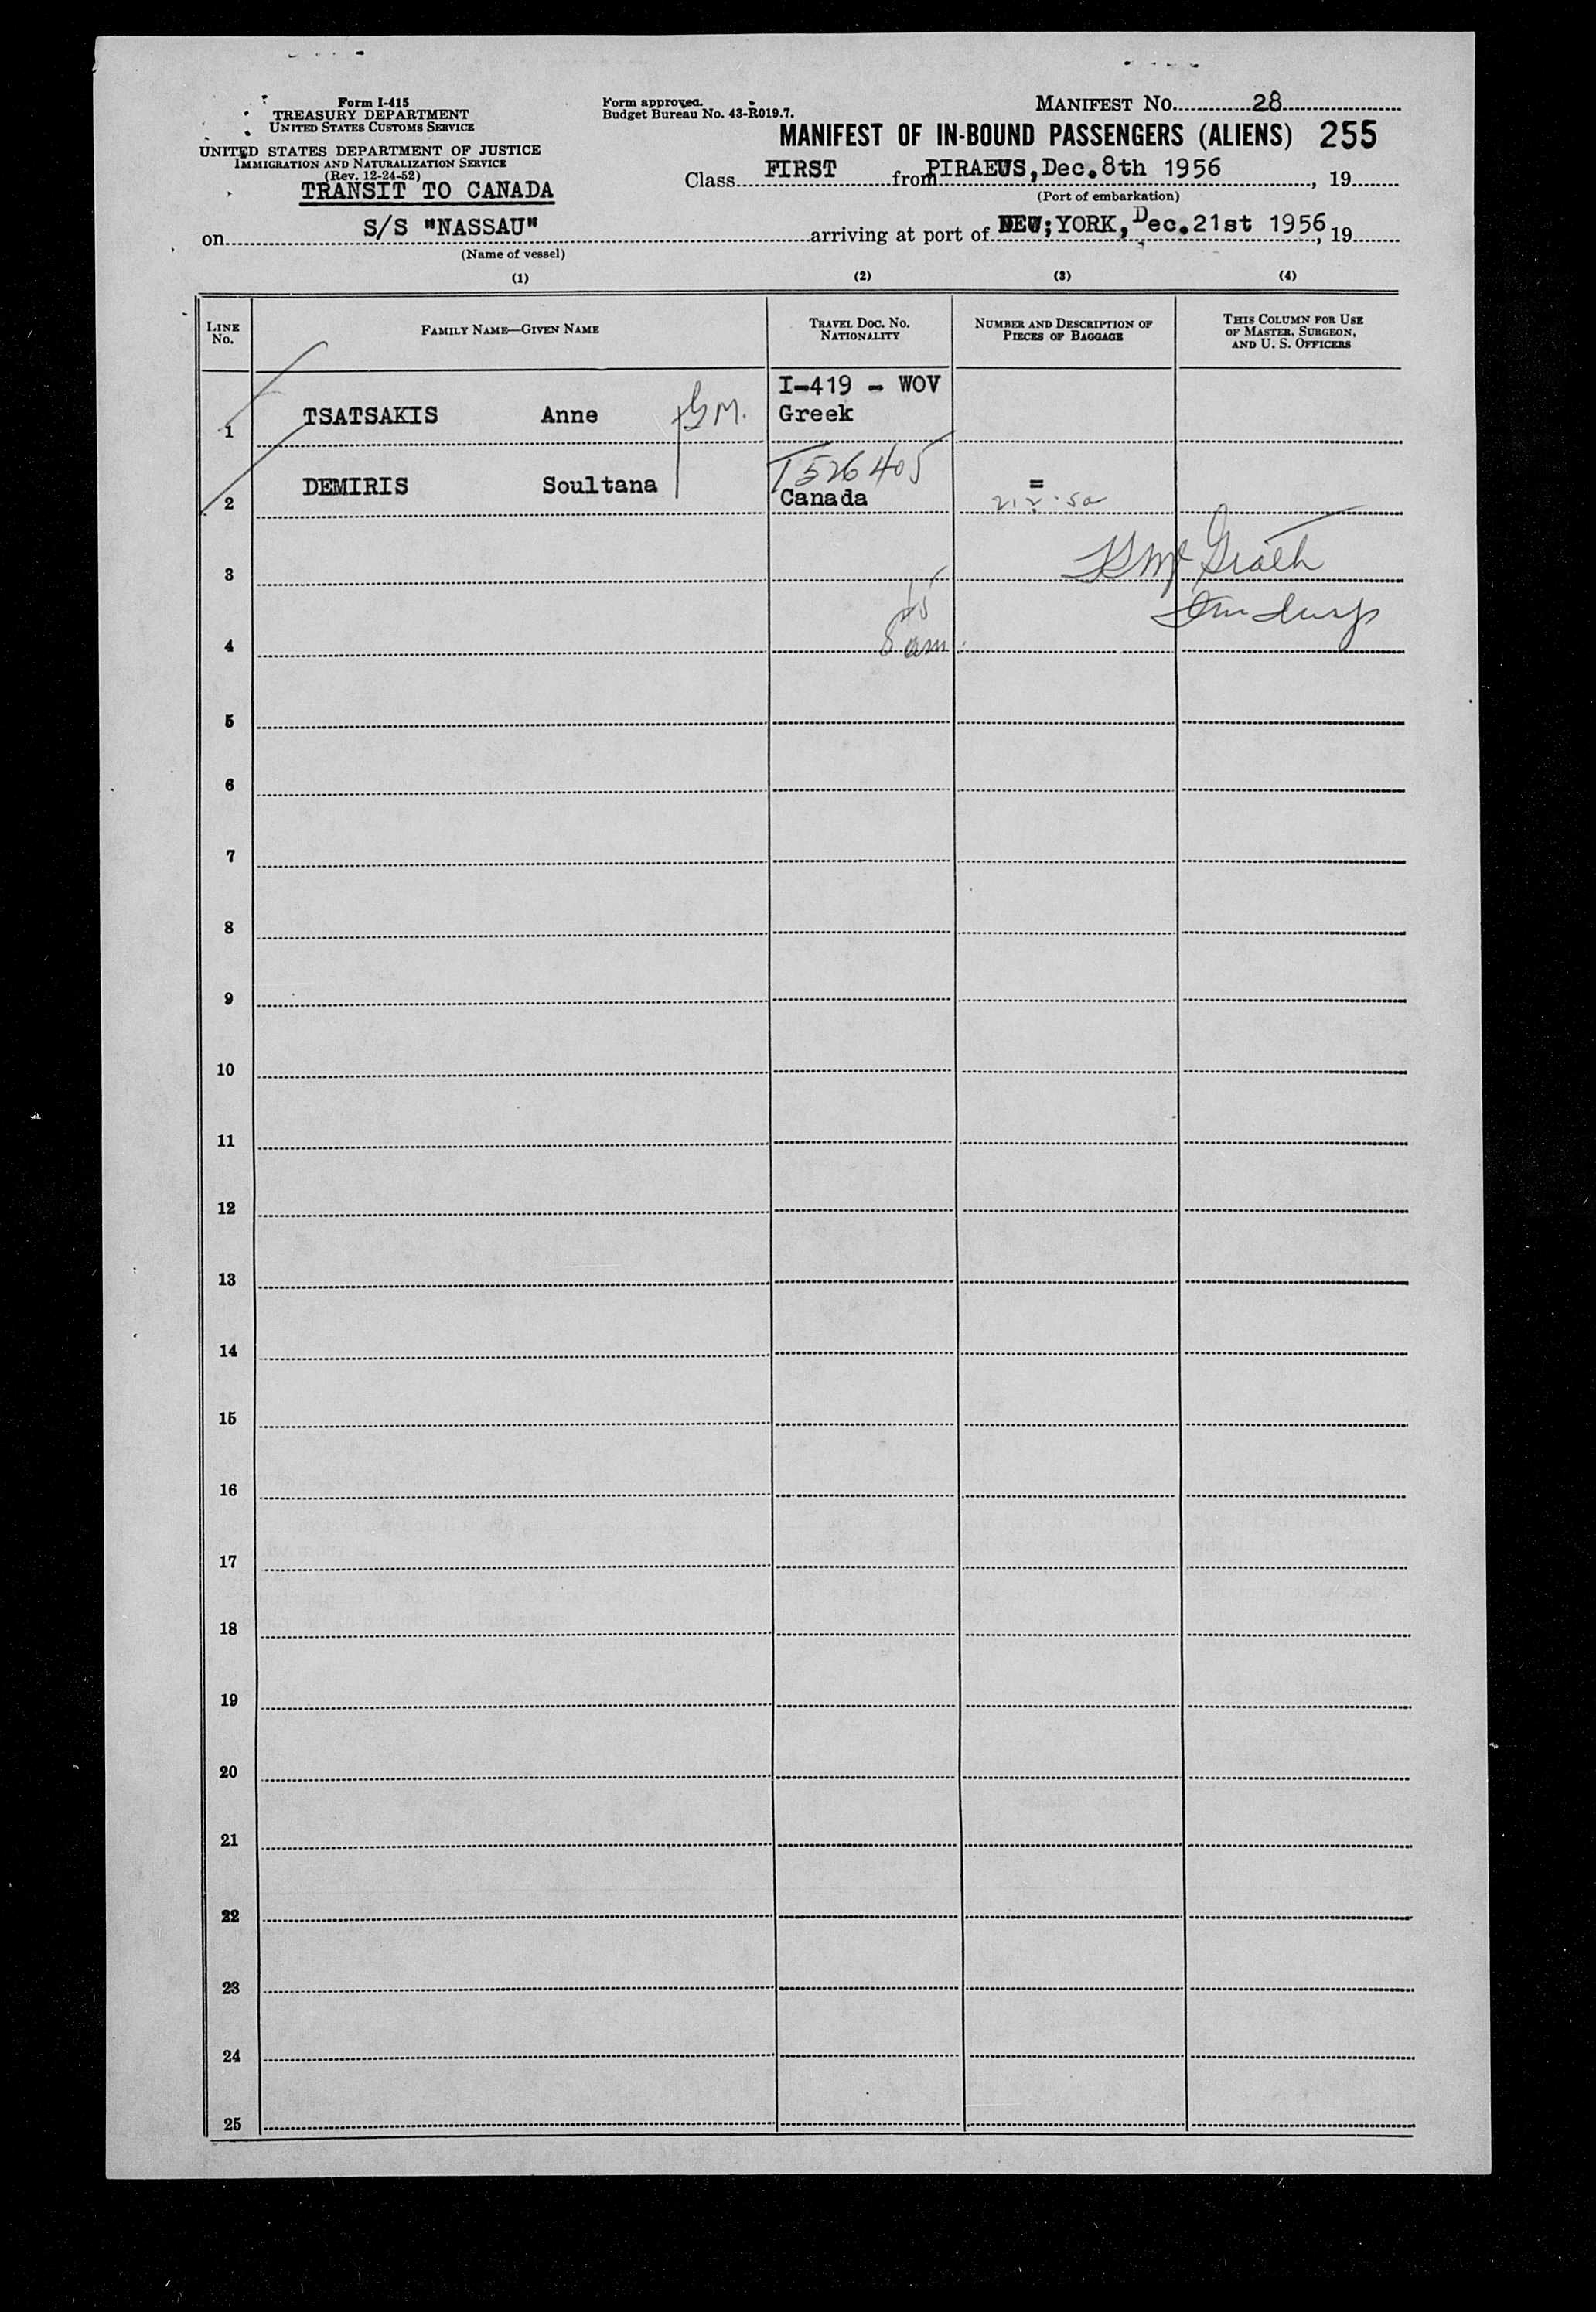 Form I-415
TREASURY DEPARTMENT
UNITED STATES CUSTOMS SERVICE
UNITED STATES DEPARTMENT OF JUSTICE
IMMIGRATION AND NATURALIZATION SERVICE
(Rev. 12-24-52)
TRANSIT TO CANADA
Form approved.
Budget Bureau No. 43-R019.7.
MANIFEST NO. 28
MANIFEST OF IN-BOUND PASSENGERS (ALIENS) 255
Class FIRST from PIRAEUS, Dec. 8th 1956, 19
(Port of embarkation)
on S/S "NASSAU" arriving at port of NEW;YORK, Dec. 21st 1956, 19
(Name of vessel)
(1) (2) (3) (4)
LINE NO. FAMILY NAME—GIVEN NAME TRAVEL DOC. NO. NATIONALITY NUMBER AND DESCRIPTION OF PIECES OF BAGGAGE THIS COLUMN FOR USE OF MASTER, SURGEON, AND U. S. OFFICERS
I-419 - WOV
1 TSATSAKIS Anne Greek
T526405
2 DEMIRIS Soultana Canada =
3 McGrath
4
5
6
7
8
9
10
11
12
13
14
15
16
17
18
19
20
21
22
23
24
25